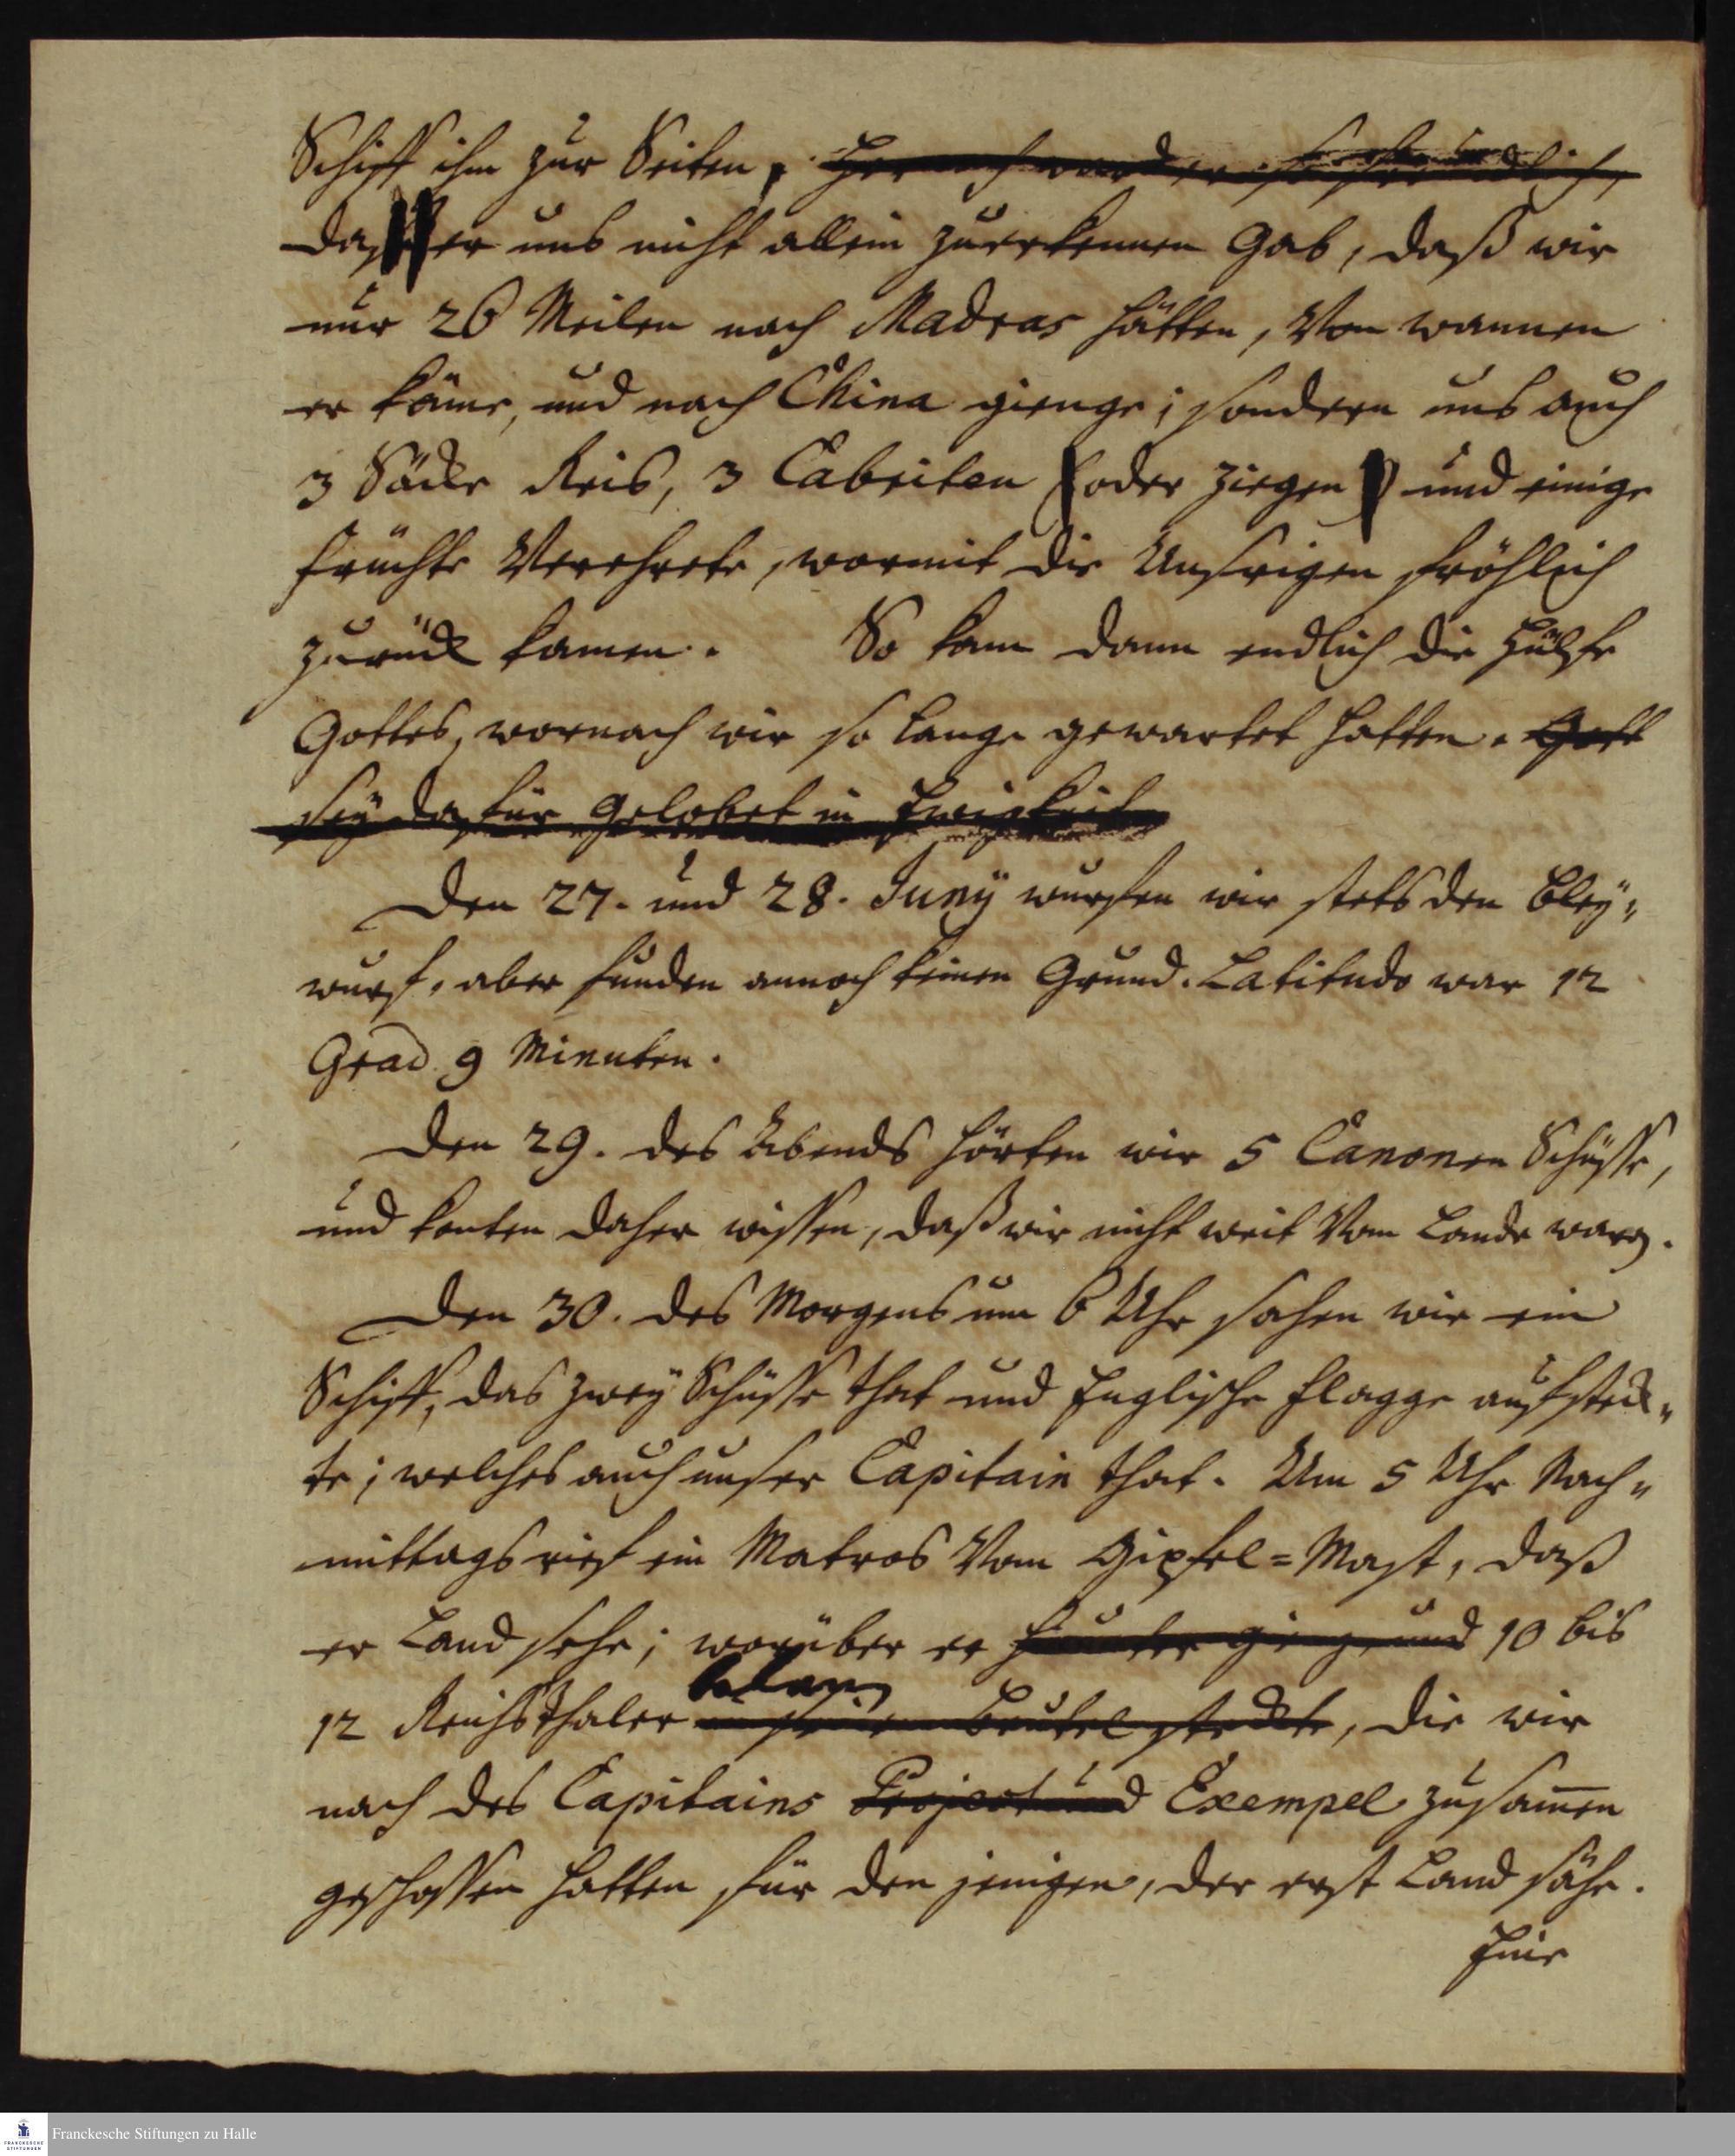 Schiff ihm zur Seiten, hernach ward er so freundlich,
daß er uns nicht allein zuerkennen Gab, daß wir
nur 26 Meilen nach Madras hätten, Von wannen
er käme, und nach China gienge; sondern uns auch
3 Säcke Reis, 3 Cabriten (oder Ziegen) und einige
früchte Verehrete, wormit die Unsrigen fröhlich
zurück kamen. So kam dann endlich die Hülfe
Gottes, wornach wir so lange gewartet hatten. Gott
sey dafür Gelobet in Ewigkeit
Den 27. und 28. Juny wurfen wir stets den Bley„
wurf, aber funden annoch keinen Grund. Latitudo war 12
Grad 9 Minuten.
Den 29. des Abends hörten wir 5 Canonen Schüsse,
und konten daher wissen, daß wir nicht weit Vom Lande waren.
Den 30. des Morgens um 6 Uhr sahen wir ein
Schiff, das zwey Schüsse that und Englische flagge aufsteck„
te; welches auch unser Capitain that. Um 5 Uhr Nach„
mittags rief ein Matros Vom Gipfel=Mast, daß
er Land sehe; worüber er hinunter gieng und 10 bis
bekam
12 Reichsthaler in seinen Beutel steckte, die wir
nach des Capitains Project und Exempel zusam̅en
geschossen hatten für den jenigen, der erst Land sähe.
Hie
Franckesche Stiftungen zu Halle
FRANCKESCHE
STIFTUNGEN